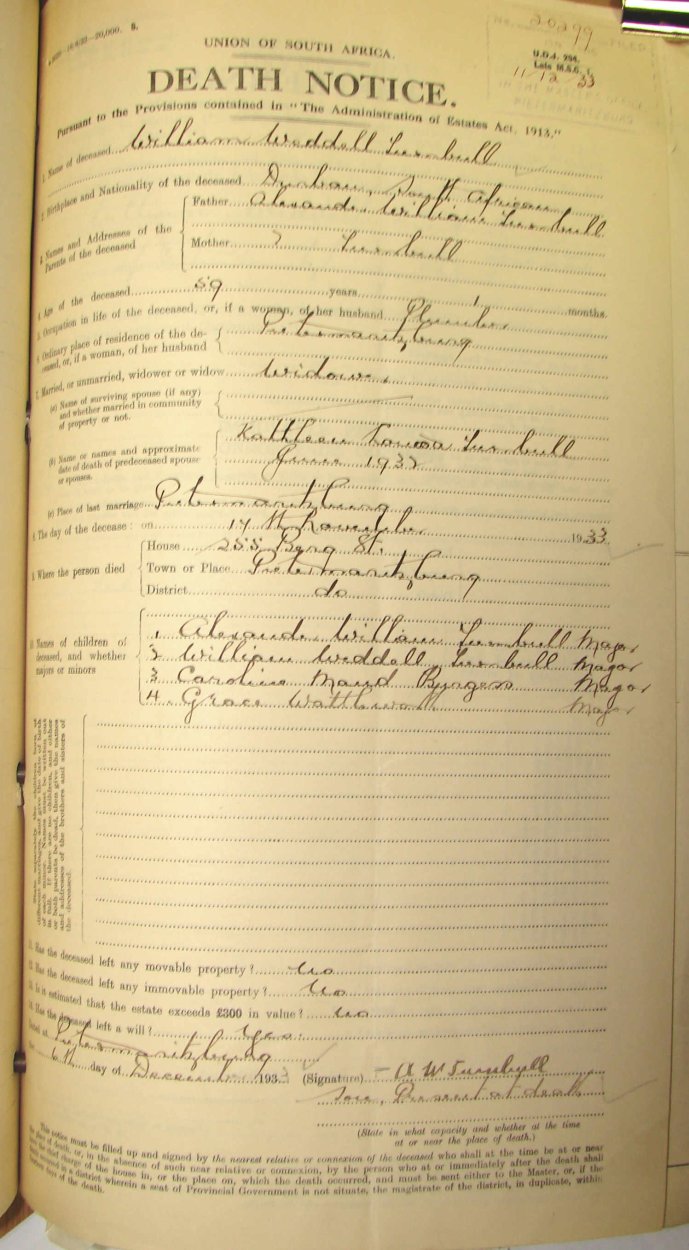 20299
U.D.J. 294.
Late M.S.C. 1.
11/12/33
UNION OF SOUTH AFRICA.
DEATH NOTICE.
Pursuant to the Provisions contained in "The Administration of Estates Act, 1913."
1. Name of deceased William Weddell Turnbull
2. Birthplace and Nationality of the deceased Durban, South African
3. Names and Addresses of the Parents of the deceased
Father Alexander William Turnbull
Mother ? Turnbull
4. Age of the deceased 59 years 1 months
5. Occupation in life of the deceased, or, if a woman, of her husband Plumber
6. Ordinary place of residence of the deceased, or, if a woman, of her husband
Pietermaritzburg
7. Married, or unmarried, widower or widow Widower
(a) Name of surviving spouse (if any) and whether married in community of property or not.
(b) Name or names and approximate date of death of predeceased spouse or spouses.
Kathleen Turnbull
June 193
(c) Place of last marriage Pietermaritzburg
8. The day of the decease: on 17th November 1933
9. Where the person died
House 255 Berg St.
Town or Place Pietermaritzburg
District do
10. Names of children of deceased, and whether majors or minors
1 Alexander William Turnbull Major
2 William Weddell Turnbull Major
3 Caroline Maud Burgess Major
4 Grace Major
State separately the children born of different marriages, and give the date of birth of each minor. Names must be written out in full. If there are no children, and either or both parents be dead, then give the names and addresses of the brothers and sisters of the deceased.
11. Has the deceased left any movable property? no
12. Has the deceased left any immovable property? No
13. Is it estimated that the estate exceeds £300 in value? no
14. Has the deceased left a will? Yes
Dated at Pietermaritzburg
the 6th day of December 193 (Signature) A W Turnbull
Son, Present at death
(State in what capacity and whether at the time
at or near the place of death.)
This notice must be filled up and signed by the nearest relative or connexion of the deceased who shall at the time be at or near
the place of death, or, in the absence of such near relative or connexion, by the person who at or immediately after the death shall
have the chief charge of the house in, or the place on, which the death occurred, and must be sent either to the Master, or, if the
death occurred in a district wherein a seat of Provincial Government is not situate, the magistrate of the district, in duplicate, within
fourteen days of the death.